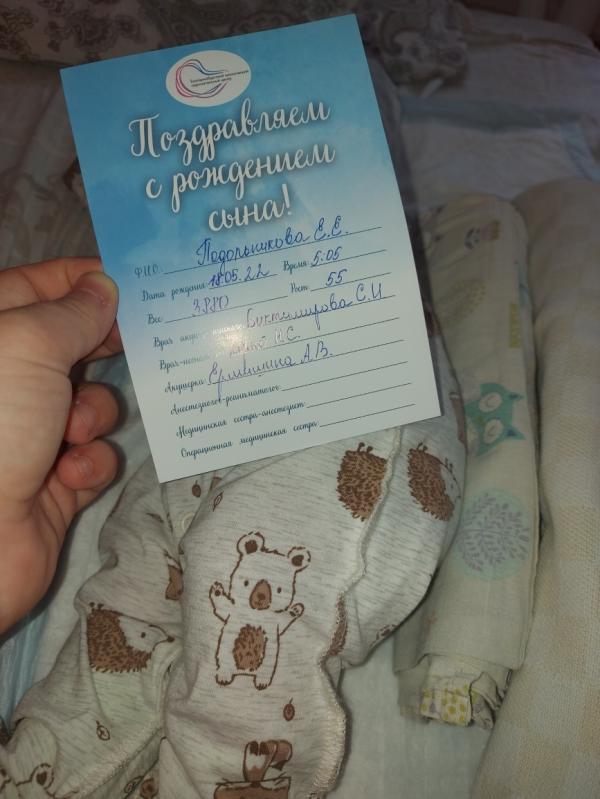 Екатеринбургский клинический
перинатальный центр
Поздравляем
с рождением
сына!
ФИО: Подольникова Е.Е.
Дата рождения: 18.05.22 Время: 5:05
Вес: 3880 Рост: 55
Врач акушер-гинеколог: Биктимирова С.И
Врач-неонатолог: Н.С.
Акушерка: А.В.
Анестезиолог-реаниматолог:
Медицинская сестра-анестезист:
Операционная медицинская сестра: